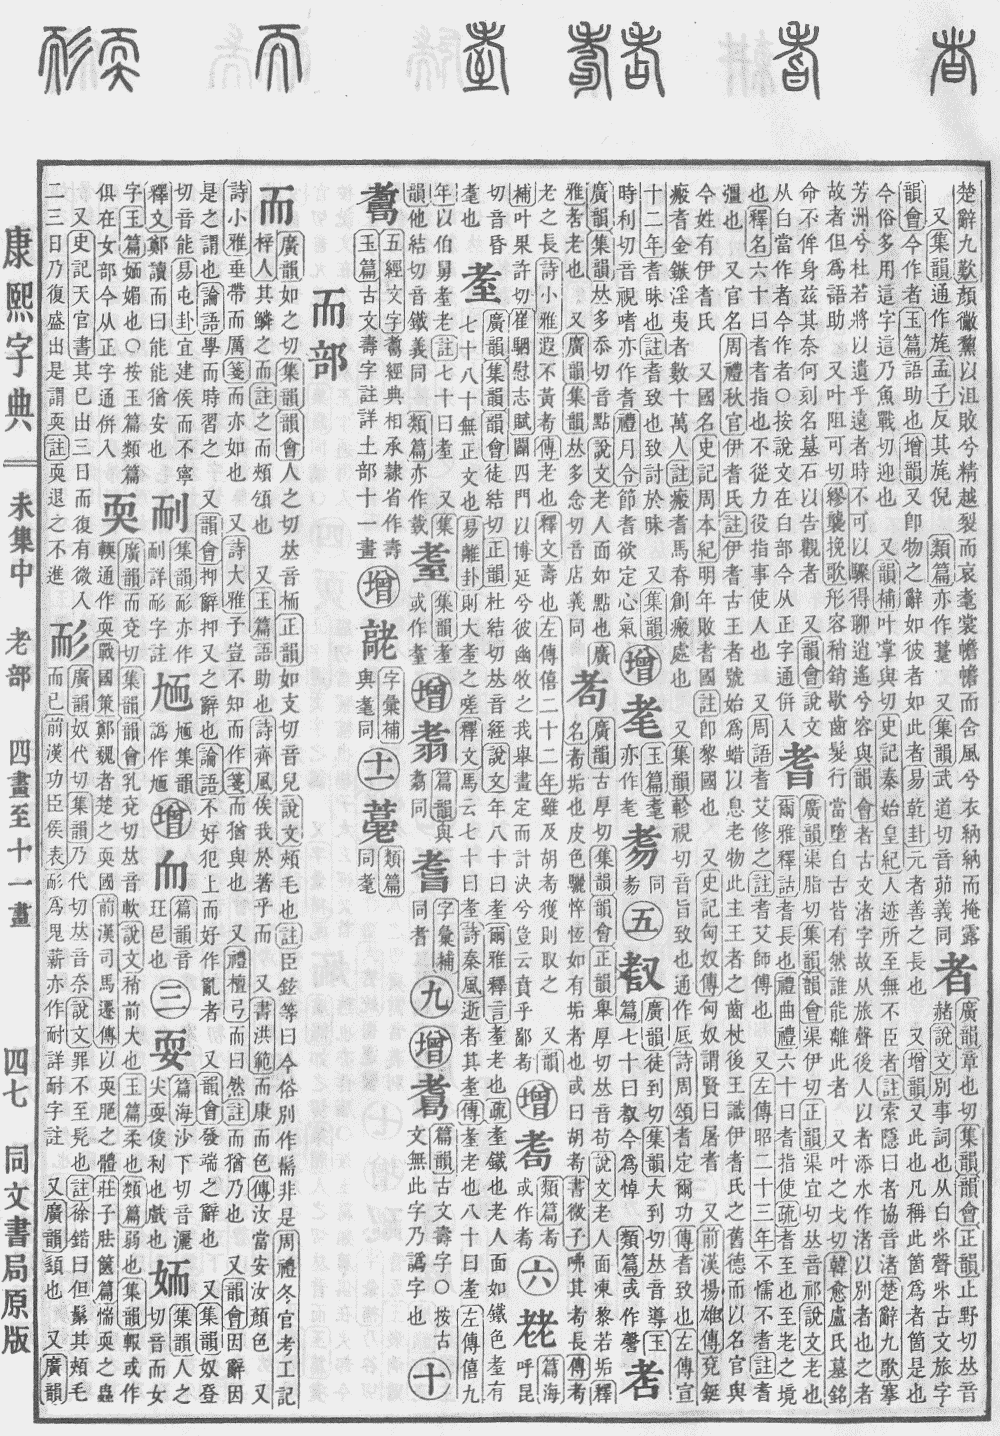 康熙字典 未集中 老部 四畫至十一畫 四七 同文書局原版
楚辭九歎顏黴黧以沮敗兮精越裂而哀耄裳襜襜而含風兮衣納納而掩露
又集韻通作旄孟子反其旄倪 類篇亦作 又集韻武道切音茆義同
者
廣韻章也切集韻韻會正韻止野切𠀤音
赭說文別事詞也从白𣥐聲𣥐古文旅字
韻會今作者玉篇語助也增韻又卽物之辭如彼者如此者易乾卦元者善之長也 又增韻又此也凡稱此箇爲者箇是也
今俗多用這字這乃魚戰切迎也 又韻補叶掌與切史記秦始皇紀人迹所至無不臣者註索隱曰者協音渚楚辭九歌搴
芳洲兮杜若將以遺乎遠者時不可以驟得聊逍遙兮容與韻會者古文渚字故从旅聲後人以者添水作渚以別也者之者
故者但爲語助 又叶阻可切繆襲挽歌形容稍銷歇齒髮行當墮自古皆有然誰能離此者 又叶之戈切韓愈盧氏墓銘
命不侔身茲其奈何刻名墓石以告觀者 韻會說文
从白當作者今作者○按說文在白部今从正字通併入
耆
廣韻渠脂切集韻韻會渠伊切正韻渠宜切𠀤音祁說文老也
爾雅釋詁耆長也禮曲禮六十曰耆指使疏耆至也至老之境
也釋名六十曰耆耆指也不從力役指事使人也 又周語耆艾修之註耆艾師傅也 又左傳昭二十三年不懦不耆註耆
彊也 又官名周禮秋官伊耆氏註伊耆古王者號始爲蜡以息老物此主王者之齒杖後王識伊耆氏之舊德而以名官與
今姓有伊耆氏 又國名史記周本紀明年敗耆國註卽黎國也 又史記匈奴傳匈奴謂賢曰屠耆 又前漢揚雄傳兗鋋
瘢耆金鏃淫夷者數十萬人註瘢耆馬脊創瘢處也 又集韻軫視切音旨致也通作厎詩周頌耆定爾功傳耆致也左傳宣
十二年耆昧也註耆致也致討於昧 又集韻
時利切音視嗜亦作耆禮月令節耆欲定心氣
增
玉篇耄
亦作
同
五
廣韻徒到切集韻大到切𠀤音導玉
篇七十曰 今爲悼 類篇或作
廣韻集韻𠀤多忝切音點說文老人面如點也廣
雅 老也 又廣韻集韻𠀤多念切音店義同
耇
廣韻古厚切集韻韻會正韻舉厚切𠀤音苟說文老人面東黎若垢釋
名耇垢也皮色驪悴恆如有垢者也或曰胡耇書微子咈其耇長傳耇
老之長長詩小雅遐不黃耇傳老也釋文壽也左傳僖二十二年雖及胡耇獲則取之 又韻
補叶果許切崔駰慰志賦闢四門以博延兮彼幽牧之我舉畫定而計決兮豈云賁乎鄙耇
增
類篇耇
或作
六
篇海
呼昆
切音昏
耄也
耋
廣韻集韻韻會徒結切正韻杜結切𠀤音絰說文年八十曰耋爾雅釋言耋老也疏耋鐵也老人面如鐵色耋有
七十八十無正文也易離卦則大耋之嗟釋文馬云七十曰耋詩秦風逝者其耋傳耋老也八十曰耋左傳僖九
年以伯舅耋老註七十曰耋 又集
韻他結切音鐵義同 類篇亦作
集韻耋
或作
增
篇韻與
同
字彙補
同耆
九
增
篇韻古文壽字○按古
文無此字乃譌字也
十
五經文字 經典相承隸省作壽
玉篇古文壽字註詳土部十一畫
增
字彙補
與耄同
十一
類篇
同耄
而部
而
廣韻如之切集韻韻會人之切𠀤音栭正韻如支切音兒說文頰毛也註臣鉉等曰今俗別作髵非是周禮冬官考工記
梓人其鱗之而註之而頰頌也 又玉篇語助也詩齊風俟我於著乎而 又書洪範而康而色傳汝當安汝顏色 又
詩小雅垂帶而厲箋而亦如也 又詩大雅予豈不知而作箋而猶與也 又禮檀弓而曰然註而猶乃也 又韻會因辭因
是之謂也論語學而時習之 又韻會抑辭抑又之辭也論語不好犯上而好作亂者 又韻會發端之辭也 又集韻奴登
切音能易屯卦宜建侯而不寧
釋文鄭讀而曰能能猶安也
耐
集韻耏亦作
耐詳耏字註
集韻
譌作
增
篇韻音
玨邑也
三
耍
篇海沙下切音灑
尖耍俊利也戲也
集韻人之
切音而女
字玉篇媚也○按玉篇類篇
俱在女部今从正字通併入
耎
廣韻而兗切集韻韻會乳兗切𠀤音軟說文稍前大也玉篇柔也類篇弱也集韻輭或作
輭通作耎戰國策鄭魏者楚之耎國前漢司馬遷傳以耎脆之體莊子胠篋篇惴耎之蟲
又史記天官書其已出三日而復有微入
二三日乃復盛出是謂耎註耎退之不進
耏
廣韻奴代切集韻乃代切𠀤音奈說文罪不至髡也註徐鍇曰但鬄其頰毛
而已前漢功臣侯表耏爲鬼薪亦作耐詳耐字註 又廣韻頦也 又廣韻